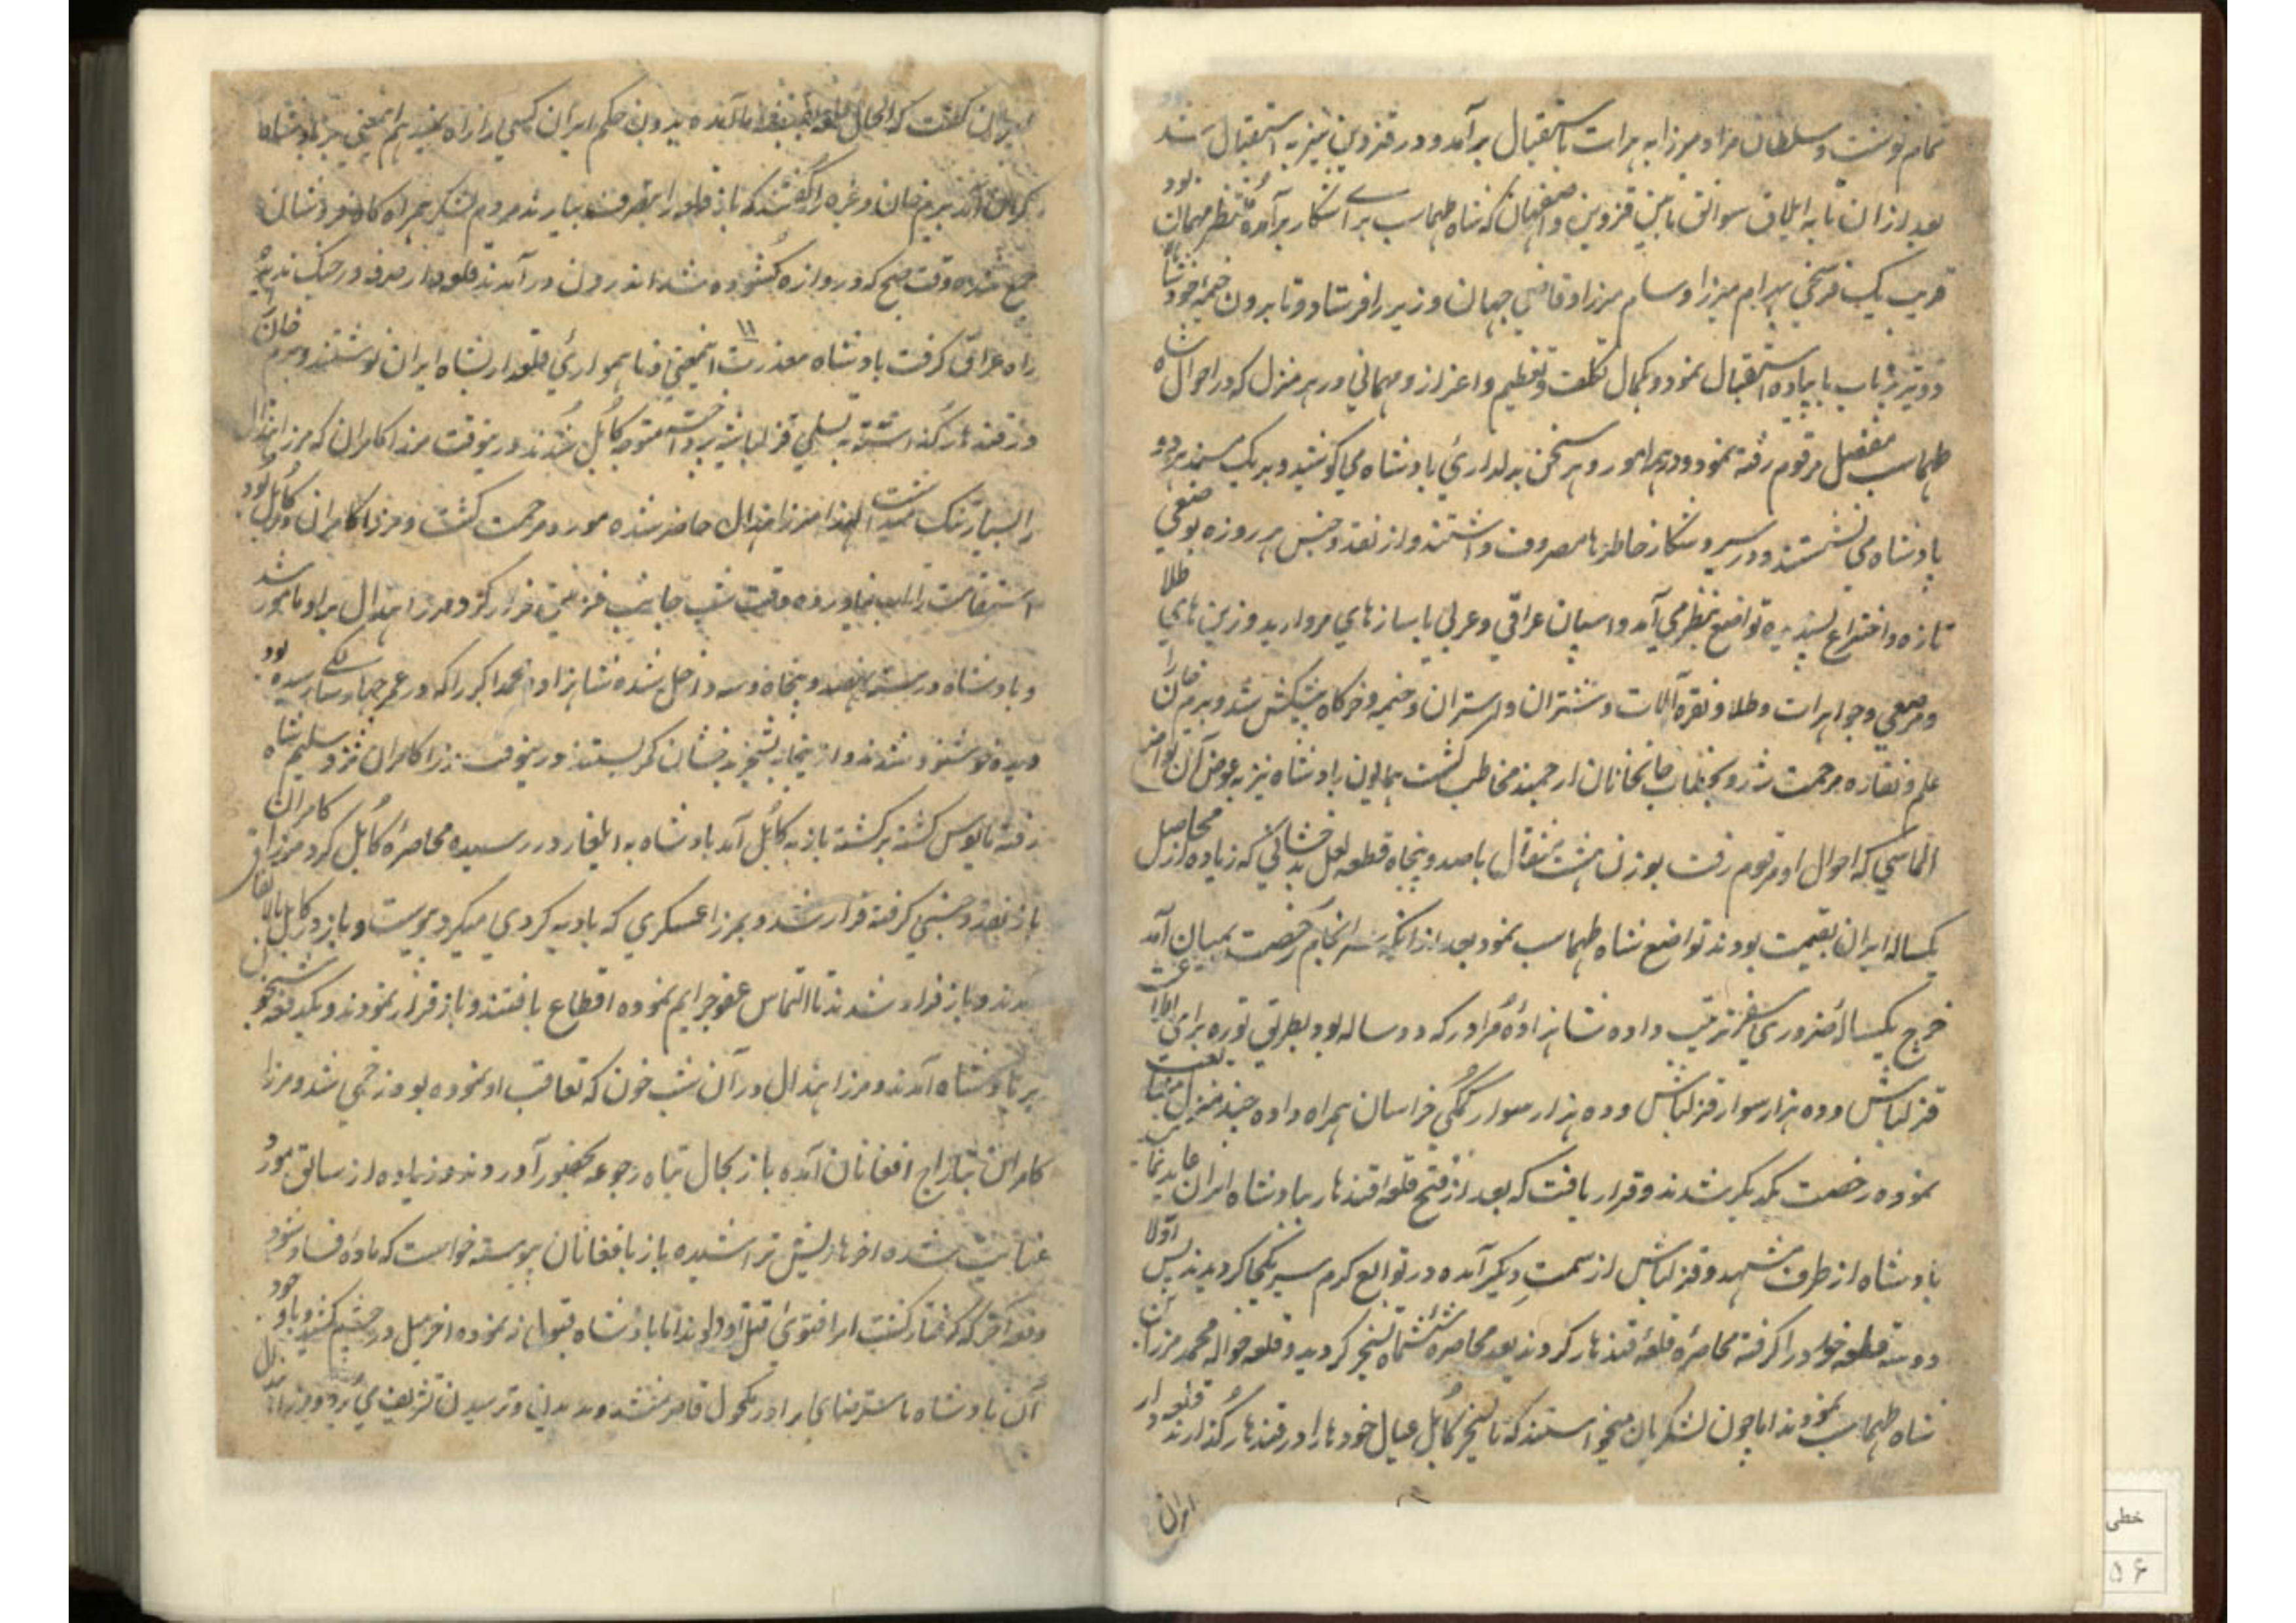 تمام نوشت و سلطان مراد میرزا به هرات باستقبال برآمد و در قزوین نیز به استقبال شد
بعد ازان تا به ایلاق سورلق مابین قزوین و اصفهان که شاه طهماسب برای شکار برآمده منتظر مهمان بود
قریب یک فرسخی بهرام میرزا و سام میرزا و قاضی جهان وزیر را فرستاد و تا برون خیمهٔ خود شاه
دو تیر پرتاب پا پیاده استقبال نمود و بکمال تکلف و تعظیم و اعزاز و مهمانی در هر منزل که در احوال شاه
طهماسب مفصل مرقوم رفته نمود و در هر امور و هر سخن بدلداریٔ بادشاه می کوشید و بر یک مسند هر دو
بادشاه می نشستند و در سیر و شکار خاطرها مصروف داشتند و از نقد و جنس هر روزه بوضعی
تازه و اختراع پسندیده تواضع بنظر می آمد و اسپان عراقی و عربی با سازهای مروارید و زین های طلا
و مرصعی و جواهرات و طلا و نقره آلات و شتران و استران و خیمه و خرگاه پیشکش شد و بیرم خان را
علم و نقاره مرحمت شد و بخطاب خانخانان ارجمند مخاطب گشت همایون بادشاه نیز به عوض آن تواضع
الماسی که احوال او مرقوم رفت بوزن هشت مثقال با صد و پنجاه قطعه لعل بدخشانی که زیاده از محاصل
یکساله ایران بقیمت بودند تواضع شاه طهماسب نمود بعد از انکه سرانجام رخصت بمیان آمد
خرج یکسالهٔ ضروری سفر ترتیب داده شاهزادهٔ مراد را که دو ساله بود بطریق توره برای اطاعت
قزلباش و ده هزار سوار قزلباش و ده هزار سوار کمکی خراسان همراه داده چند منزل مشایعت
نموده رخصت یکدیگر شدند و قرار یافت که بعد از فتح قلعه قندهار بادشاه ایران عاید نماید
بادشاه از طرف مشهد و قزلباش از سمت دیگر آمده در توابع گرم سیر یکجا گردیدند پس اولا
دو سه قطعه خود را گرفته محاصرهٔ قلعهٔ قندهار کردند بعد محاصره ششماه تسخیر گردید و قلعه حواله محمد میرزا
شاه طهماسب نمودند اما چون لشکریان میخواستند که تا تسخیر کابل عیال خودها را در قندهار گذارند قلعدار
ایران
گفت که الحال بدون حکم ایران کسی را راه نمیدهم اینمعنی بر بادشاه
گران آمد بیرم خان وغیره را گفتند که باز قلعه را بتصرف بیارند مردم لشکر همراه کاه فروشان
جمع شده وقت صبح که دروازه گشوده شد اندرون درآمدند قلعدار صرفه در جنگ ندیده
راه عراق گرفت بادشاه معذرت اینمعنی و ناهمواریٔ قلعدار بشاه ایران نوشتند و بیرم خان
در قندهار گذاشته به تسلی قزلباش پرداخته متوجه کابل شدند درینوقت میرزا کامران که میرزا هندال
را بسیار تنگ میداشت لهذا میرزا هندال حاضر شده مورد مرحمت گشت و میرزا کامران در کابل بود
استقامت را تاب نیاورده وقت شب جانب غزنین فرار کرد و میرزا هندال بر او مامور شد
و بادشاه در سنه نهصد و پنجاه و سه داخل شده شاهزاده محمد اکبر را که در عمر چهار سالگی رسیده بود
دیده خوشنود شدند و از اینجا به تسخیر بدخشان کمر بستند درینوقت میرزا کامران نزد سلیم شاه
رفته مایوس گشته برگشته باز به کابل آمد بادشاه به ایلغار در رسیده محاصرهٔ کابل کرد میرزا کامران
باز نقد و جنسی گرفته فرار شد و بمیرزا عسکری که بادیه گردی میکرد پیوست و باز در کابل باتفاق
آمدند و باز فرار شدند تا التماس عفو جرایم نموده اقطاع یافتند و باز فرار نمودند و یکدفعه شبخون
بر بادشاه آمدند و میرزا هندال در آن شب خون که تعاقب او نموده بود زخمی شد و میرزا
کامران بتاراج افغانان آمده باز بحال تباه رجوعه بحضور آوردند و زیاده از سابق مورد
عنایت شده آخرها ریش تراشیده باز بافغانان پیوسته خواست که ماده فساد شود
دفعهٔ آخر که گرفتار گشت امرا فتوی قتل او دادند اما بادشاه قبول نه نموده آخر میل در چشم کشید و باوجود
آن بادشاه با سترضای برادر مکحول قاصر نشدند و بدیدن و ترسیدن تشریف می برد و میرزا هندال
خطی
۵۶